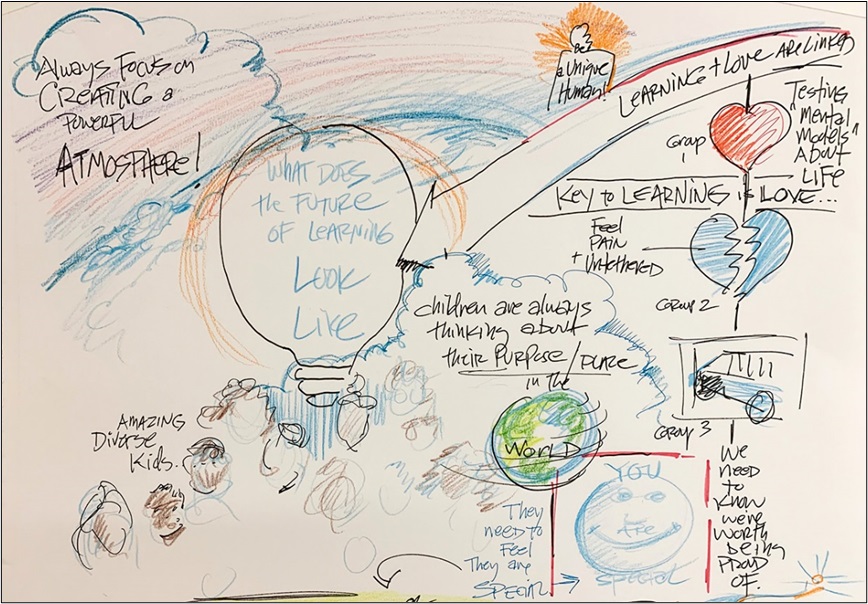 Always Focus on
CREATING a
POWERFUL
ATMOSPHERE!
WHAT DOES
the FUTURE
OF LEARNING
LOOK
LIKE
Be
a Unique
Human!
LEARNING + LOVE ARE LINKED
Group
1
Testing
"Mental
Models"
About
LIFE
KEY to LEARNING is LOVE...
Feel
PAIN
+ Untethered
Group 2
children are always
thinking about
their PURPOSE/PLACE
in the
WORLD
Group 3
AMAZING
Diverse
Kids.
They
need to
Feel
They are
SPECIAL
YOU
ARE
SPECIAL
We
NEED
to
Know
we're
WORTH
being
PROUD
OF.